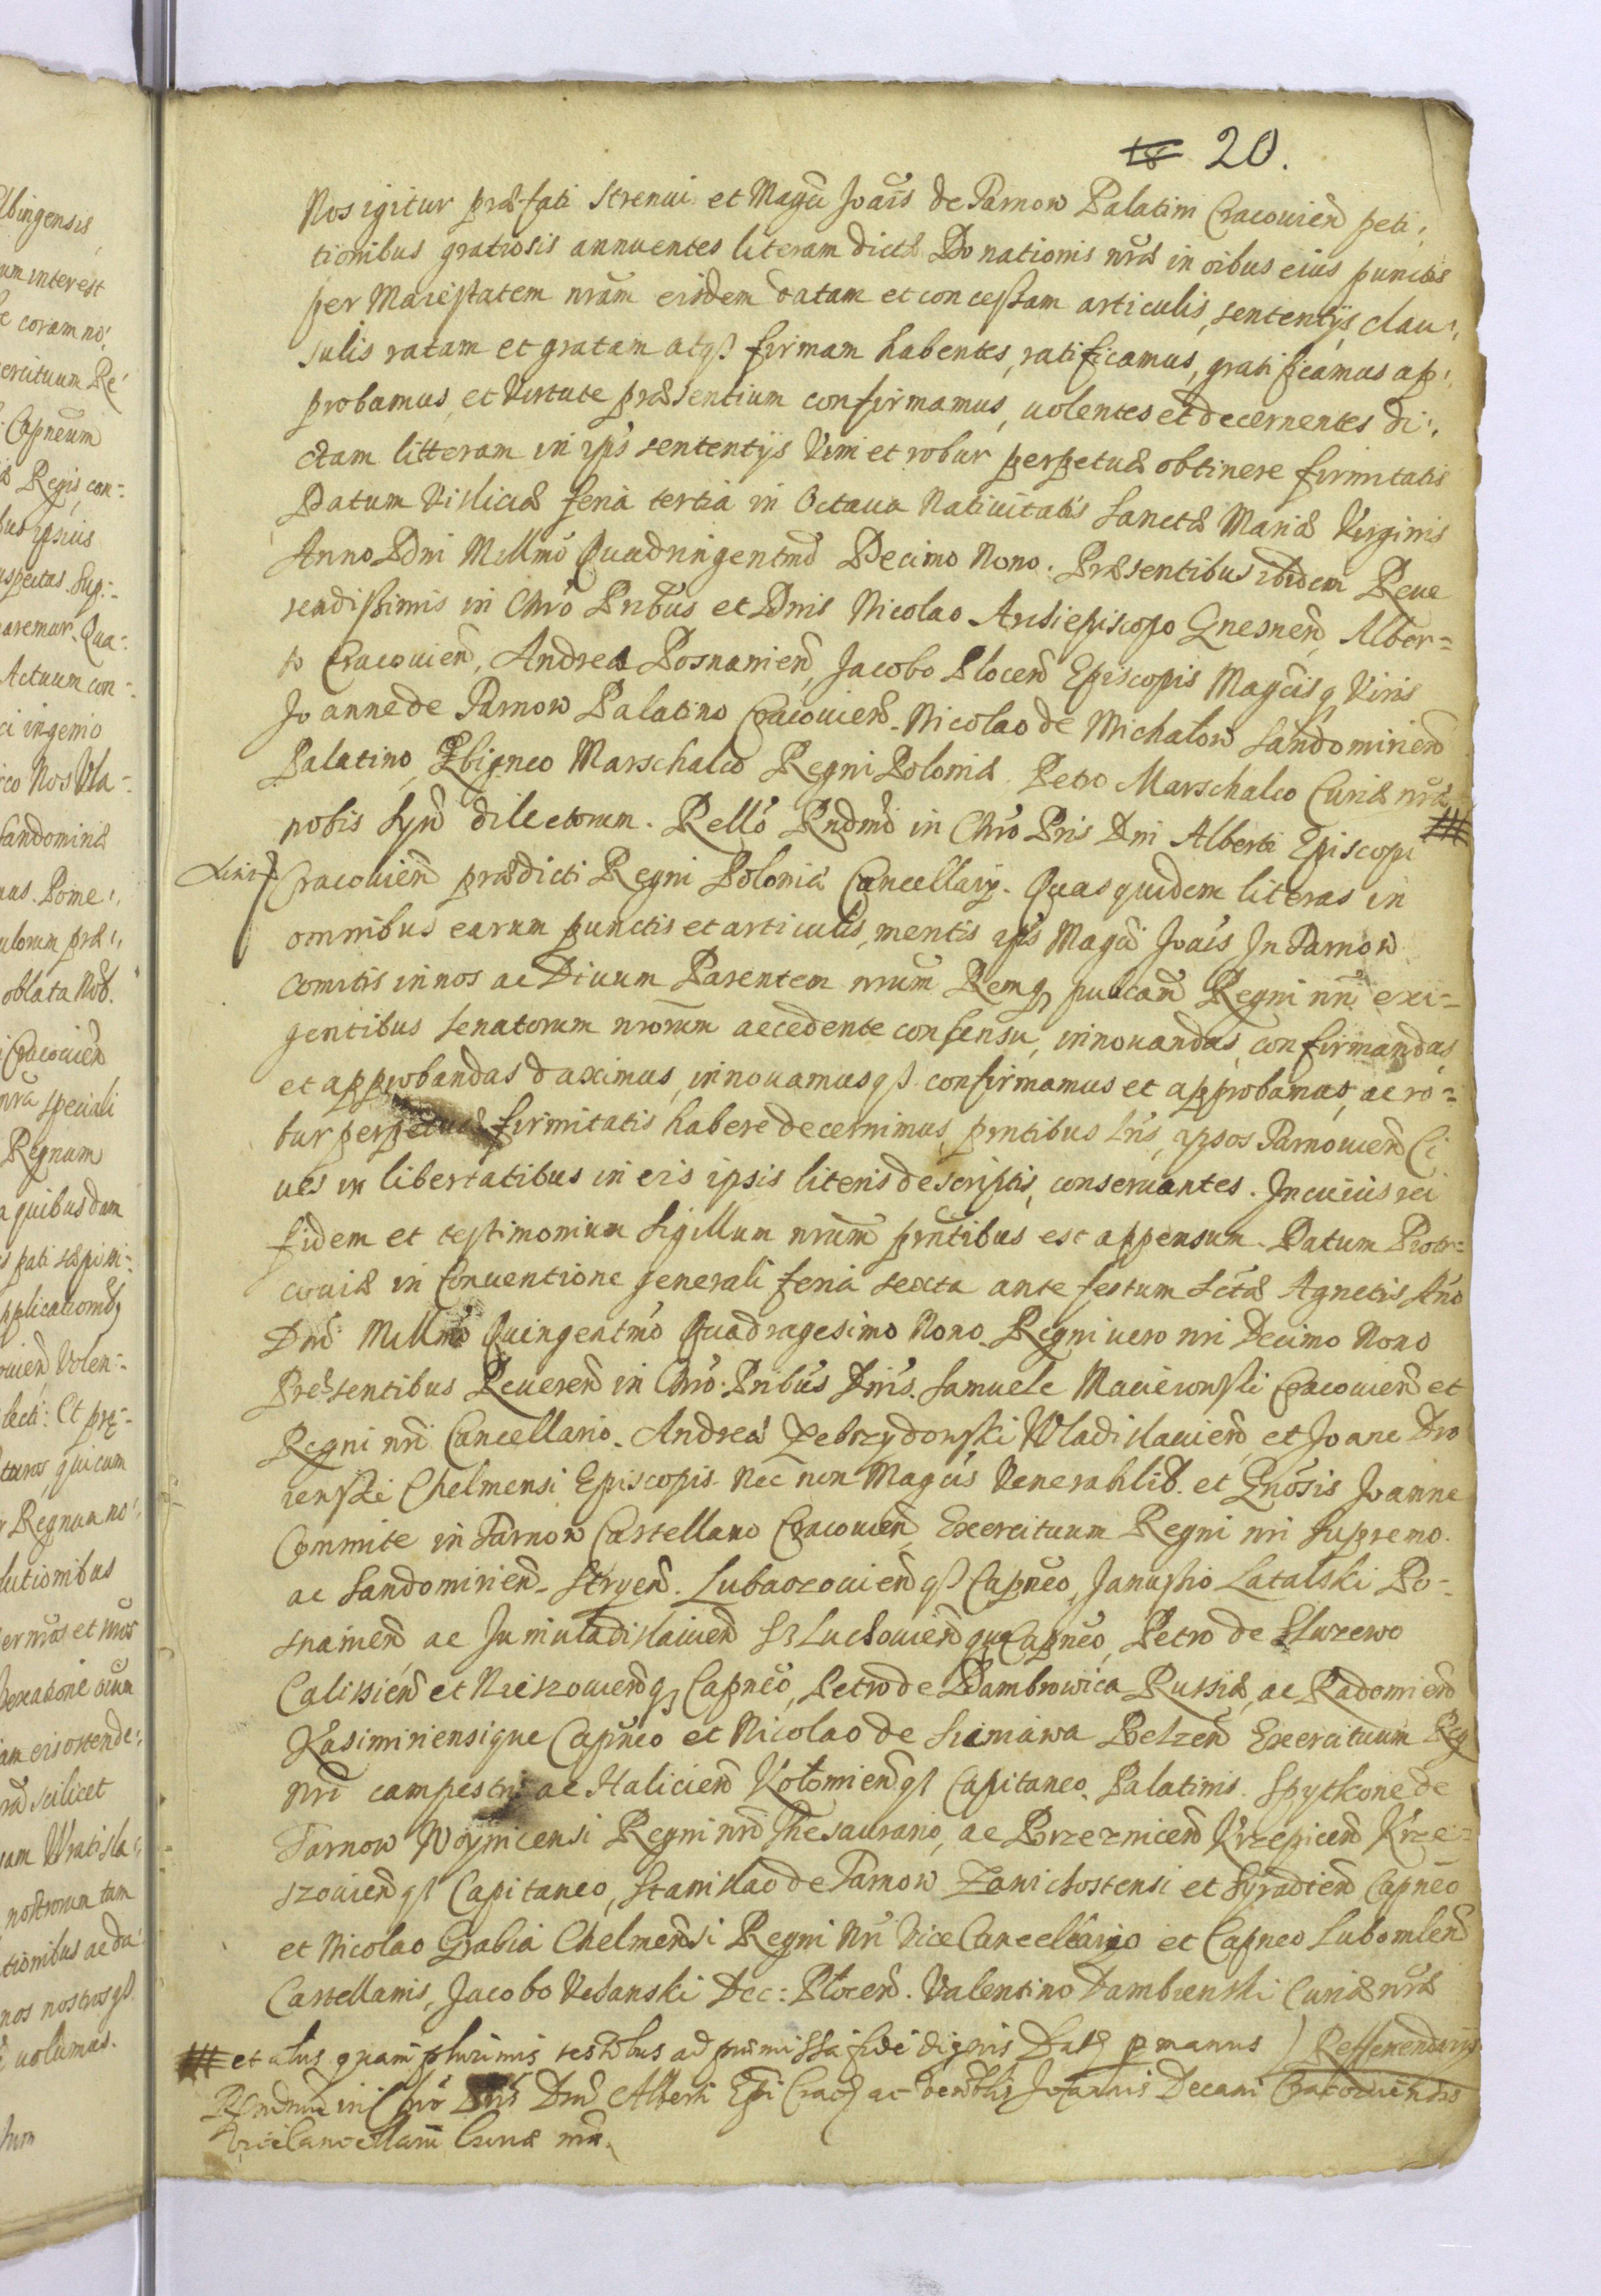 20.
Nos igitur præfati Strenui et Magci Joais de Tarnow Palatini Cracouien peti:
tionibus gratiosis annuentes literam dictæ Donationis nræ in oibus eius punctis
per Maiestatem nram eisdem datam et concessam articulis, sententijs, clau:,
sulis ratam et gratam atqß firmam habentes, ratificamus, gratificamus ap:,
probamus, et Virtute præsentium confirmamus, uolentes et decernentes di:,
ctam litteram in ips sententijs Vim et robur perpetuæ obtinere firmitatis
Datum Vislicia feria tertia in Octaua Natiuitatis Sanctæ Mariæ Virginis
Anno Dni Millmo Quadringentmo Decimo Nono. Præsentibus ibidem Reue
rendissimis in Chro Pribus et Dnis Nicolao Archiepiscopo Gnesnen, Alber=
to Cracouien, Andrea Posnanien, Jacobo Plocen Episcopis Magcisq Viris
Joanne de Tarnow Palatino Cracouien. Nicolao de Michalow Sandomirien
Palatino, Zbigneo Marschalco Regni Poloniæ. Petro Marschalco Curiæ nræ
nobis Syn dilectorum. Rello Rndmi in Chro Pris Dni Alberti Episcopi
Cracouien prædicti Regni Poloniæ Cancellarij. Quas quidem literas in
omnibus earum punctis et articulis, mentis ips Magci Joais In Tarnow
Comitis in nos ac Diuum Parentem nrum Remq publcam Regni nri exi=
gentibus Senatorum nrorum accedente consensu, innouandas, confirmandas,
et approbandas daximus, innouamusqß confirmamus et approbamus, ac ro=
bur perpetuæ firmitatis habere decernimus, pntibus lris, ipsos Tarnouien Ci
ues in libertatibus in eis ipsis literis descriptis, conseruantes. In cuius rei
fidem et testimonium Sigillum nrum pntibus est appensum. Datum Piotr=
couiæ in Conuentione generali feria sexta ante festum Sctæ Agnetis Ano
Dni Millmo Quingentmo Quadragesimo Nono. Regni uero nri Decimo Nono
Presentibus Reueren in Chro. Pribus Dnis. Samuele Macieiowski Cracouien et
Regni nri Cancellario. Andrea Zebrzydowski Wladislauien, et Joane Dro
ienski Chelmensi Episcopis. Nec non Magcis Venerablib. et Gnosis Joanne
Commite in Tarnow Castellano Cracouien, Exercituum Regni nri Supremo.
ac Sandomirien. Stryen. Lubaczouienqß Capneo, Janussio Latalski Po=
snanien ac Juniuladislauien Szluchouienque Capneo, Petro de Sluzewo
Calissien et Miedzowienq Capneo, Petro de Dambrowica Russiæ, ac Radomien
Kasimiriensique Capneo et Nicolao de Sieniawa Belzen Exercituum Rg
nri campestri ac Halicien Kolomienqß Capitaneo. Palatinis. Spytkone de
Tarnow Woynicensi Regni nri Thesaurario, ac Brzeznicen Krzepicen Krze=
szouienqß Capitaneo, Stanislao de Tarnow Zawichostensi et Syradien Capneo
et Nicolao Grabia Chelmensi Regni Nri Vice Cancellario et Capneo Lubomlen
Castellanis, Jacobo Vchanski Dec: Plocen. Valentino Dambienski Curiæ nræ
et alus quam plurimis testibus ad præmissa fide dignis Datq p manus) Referendarijs
Rndmi in Chro Pris Dni Alberti Epi Crac ac Venerblis Joannis Decani Cracouiensis
ViceCancellarii Curiæ nræ.